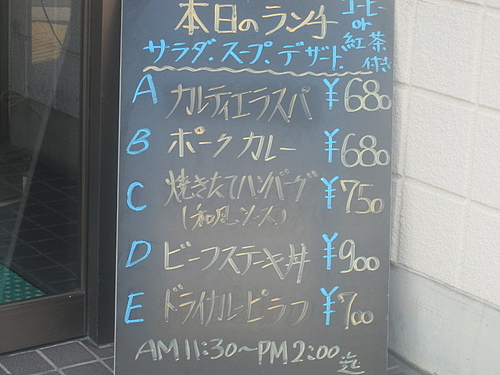 本日のランチ
コーヒー
or
紅茶
付き
サラダ.スープ.デザート
A カルティエラスパ ¥680
B ポークカレー ¥680
C 焼きたてハンバーグ ¥750
(和風ソース)
D ビーフステーキ丼 ¥900
E ドライカレーピラフ ¥700
AM11:30~PM2:00迄